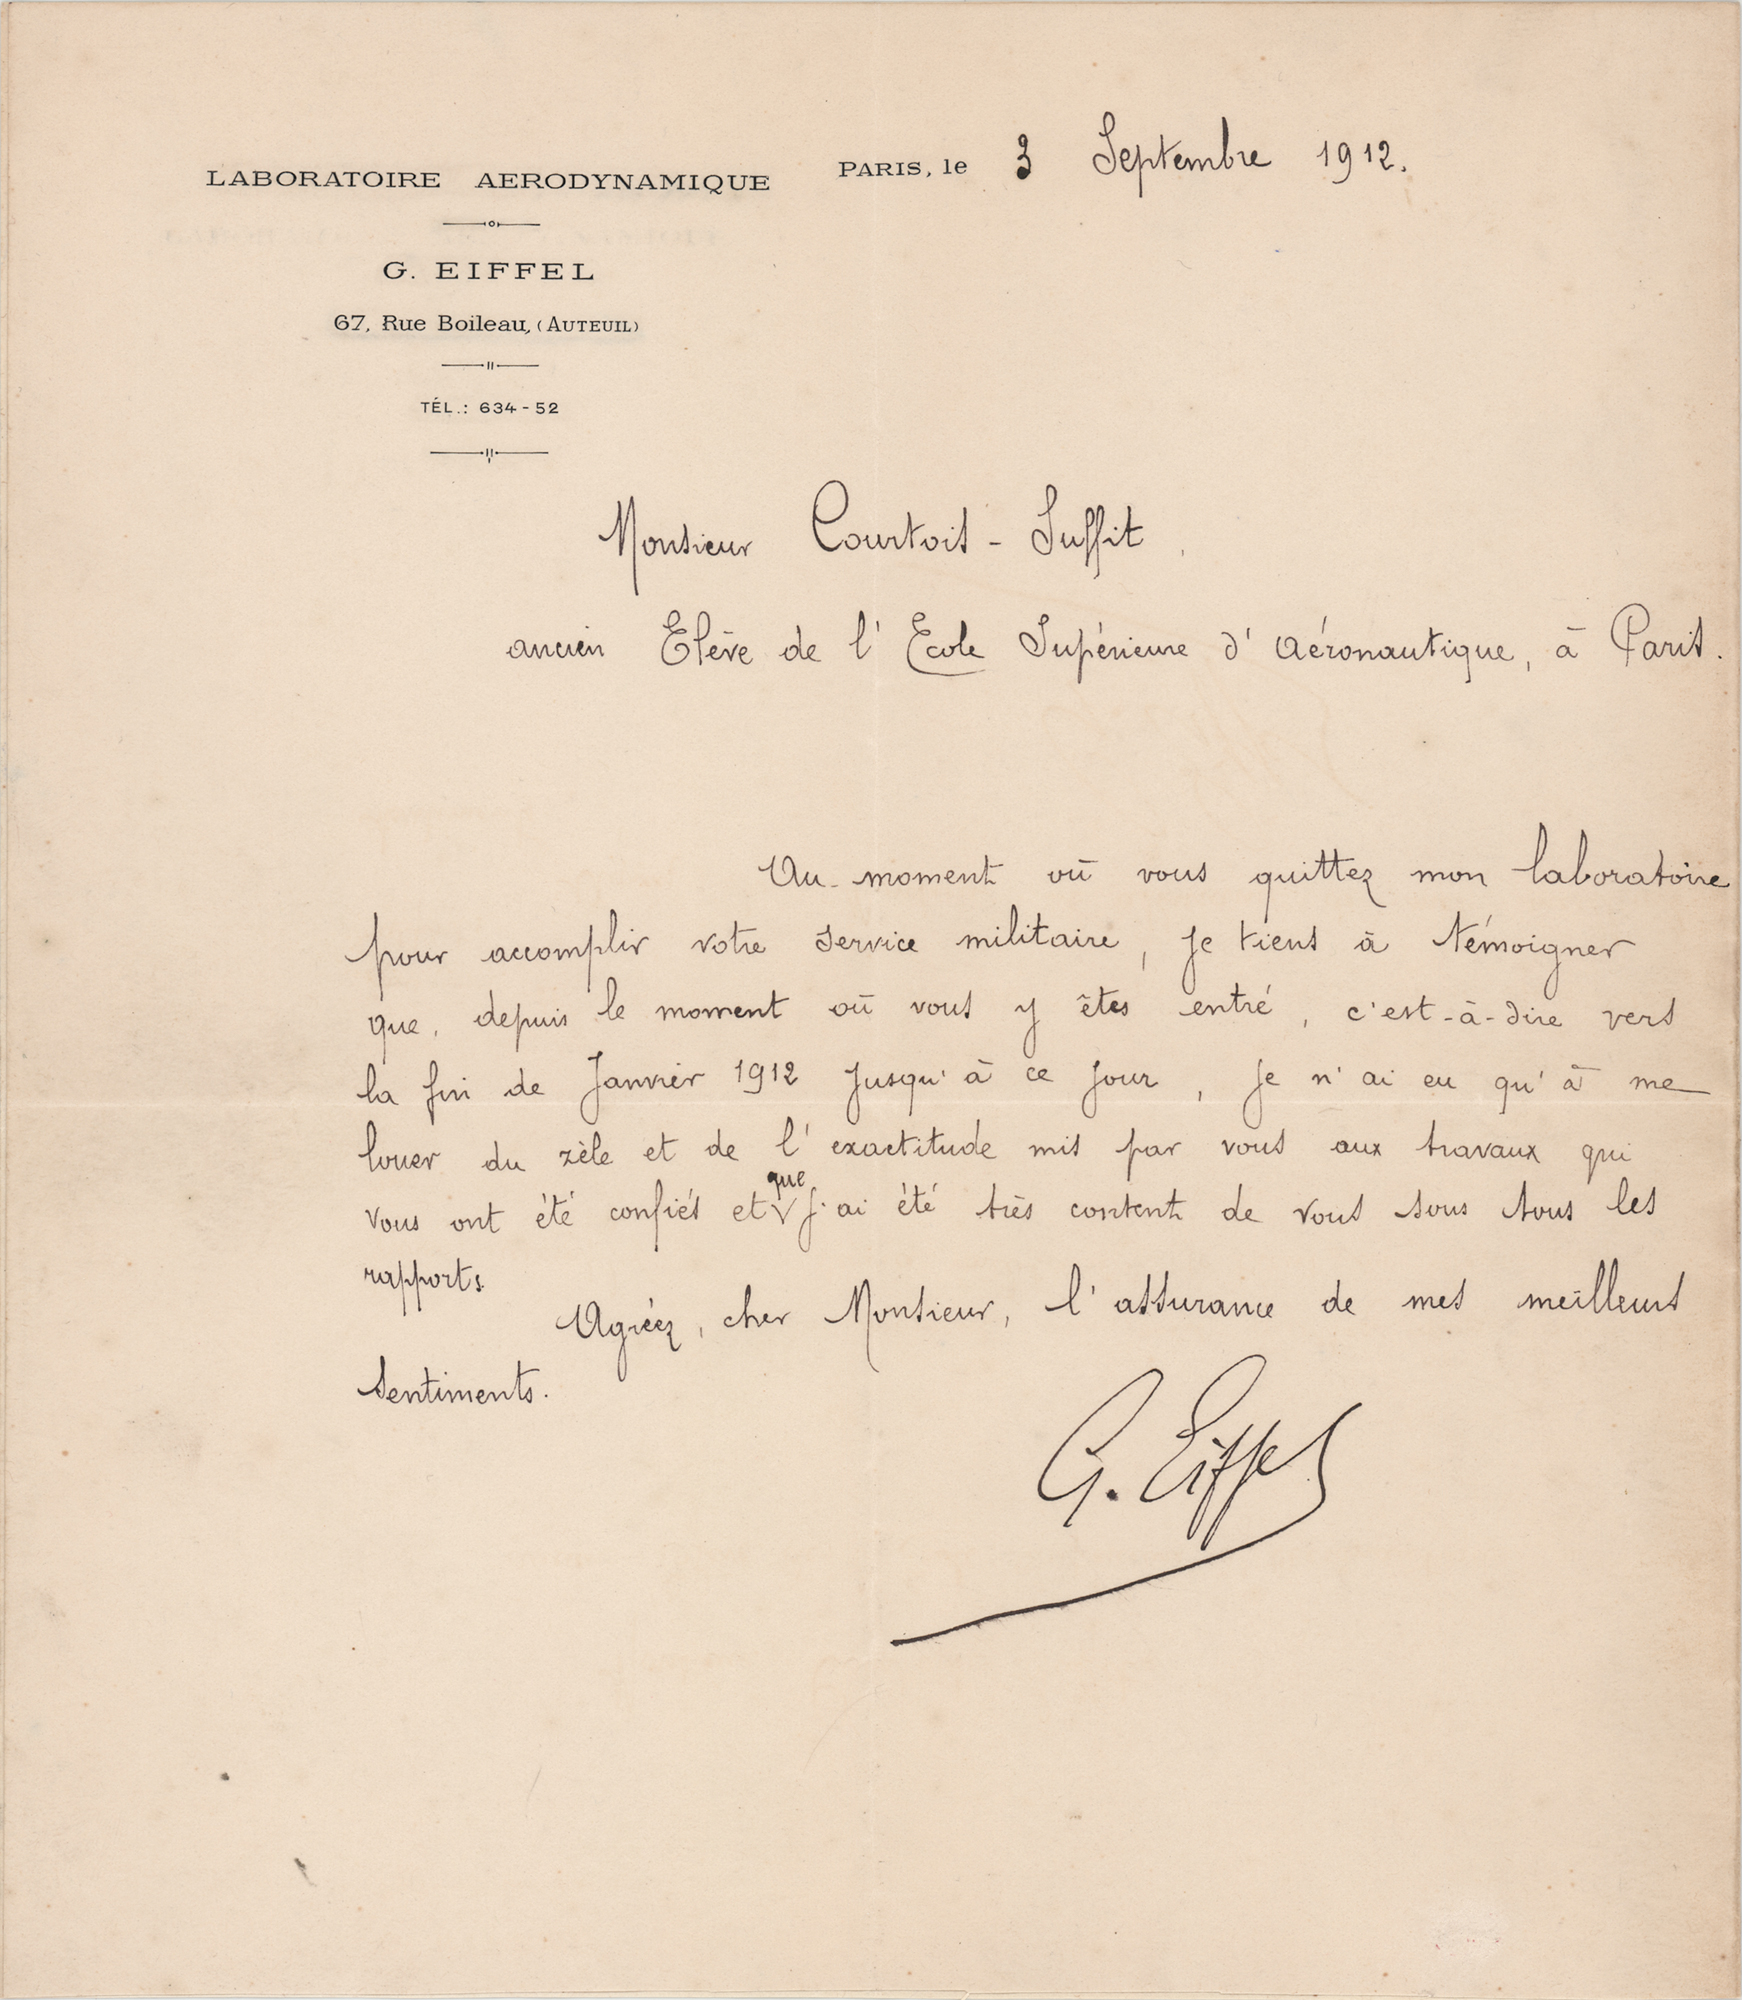 LABORATOIRE AERODYNAMIQUE
PARIS, le 3 Septembre 1912.
G. EIFFEL
67, Rue Boileau, (AUTEUIL)
TÉL.: 634-52
Monsieur Courtois-Suffit
ancien Elève de l'Ecole Supérieure d'Aéronautique, à Paris.
Au moment où vous quittez mon laboratoire
pour accomplir votre service militaire, je tiens à témoigner
que, depuis le moment où vous y êtes entré, c'est-à-dire vers
la fin de Janvier 1912 jusqu'à ce jour, je n'ai eu qu'à me
louer du zèle et de l'exactitude mis par vous aux travaux qui
vous ont été confiés et que j'ai été très content de vous sous tous les
rapports.
Agréez, cher Monsieur, l'assurance de mes meilleurs
sentiments.
G. Eiffel